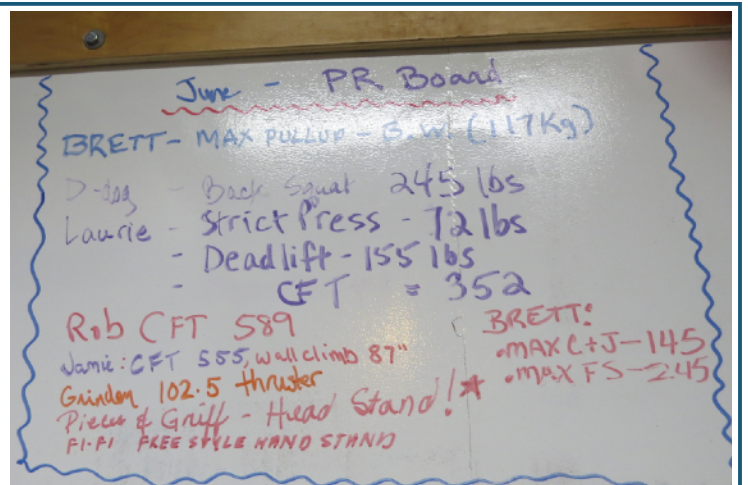 June - PR Board
BRETT - MAX PULLUP - B.W. (117Kg)
D-dog - Back Squat 245 lbs
Laurie - Strict Press - 72 lbs
- Deadlift - 155 lbs
- CFT = 352
Rob CFT 589
Jamie: CFT 555, wall climb 87"
Grinden 102.5 thruster
& Griff - Head Stand!*
FI-FI FREE STYLE HAND STAND
BRETT:
• MAX C+J - 145
• MAX FS - 245